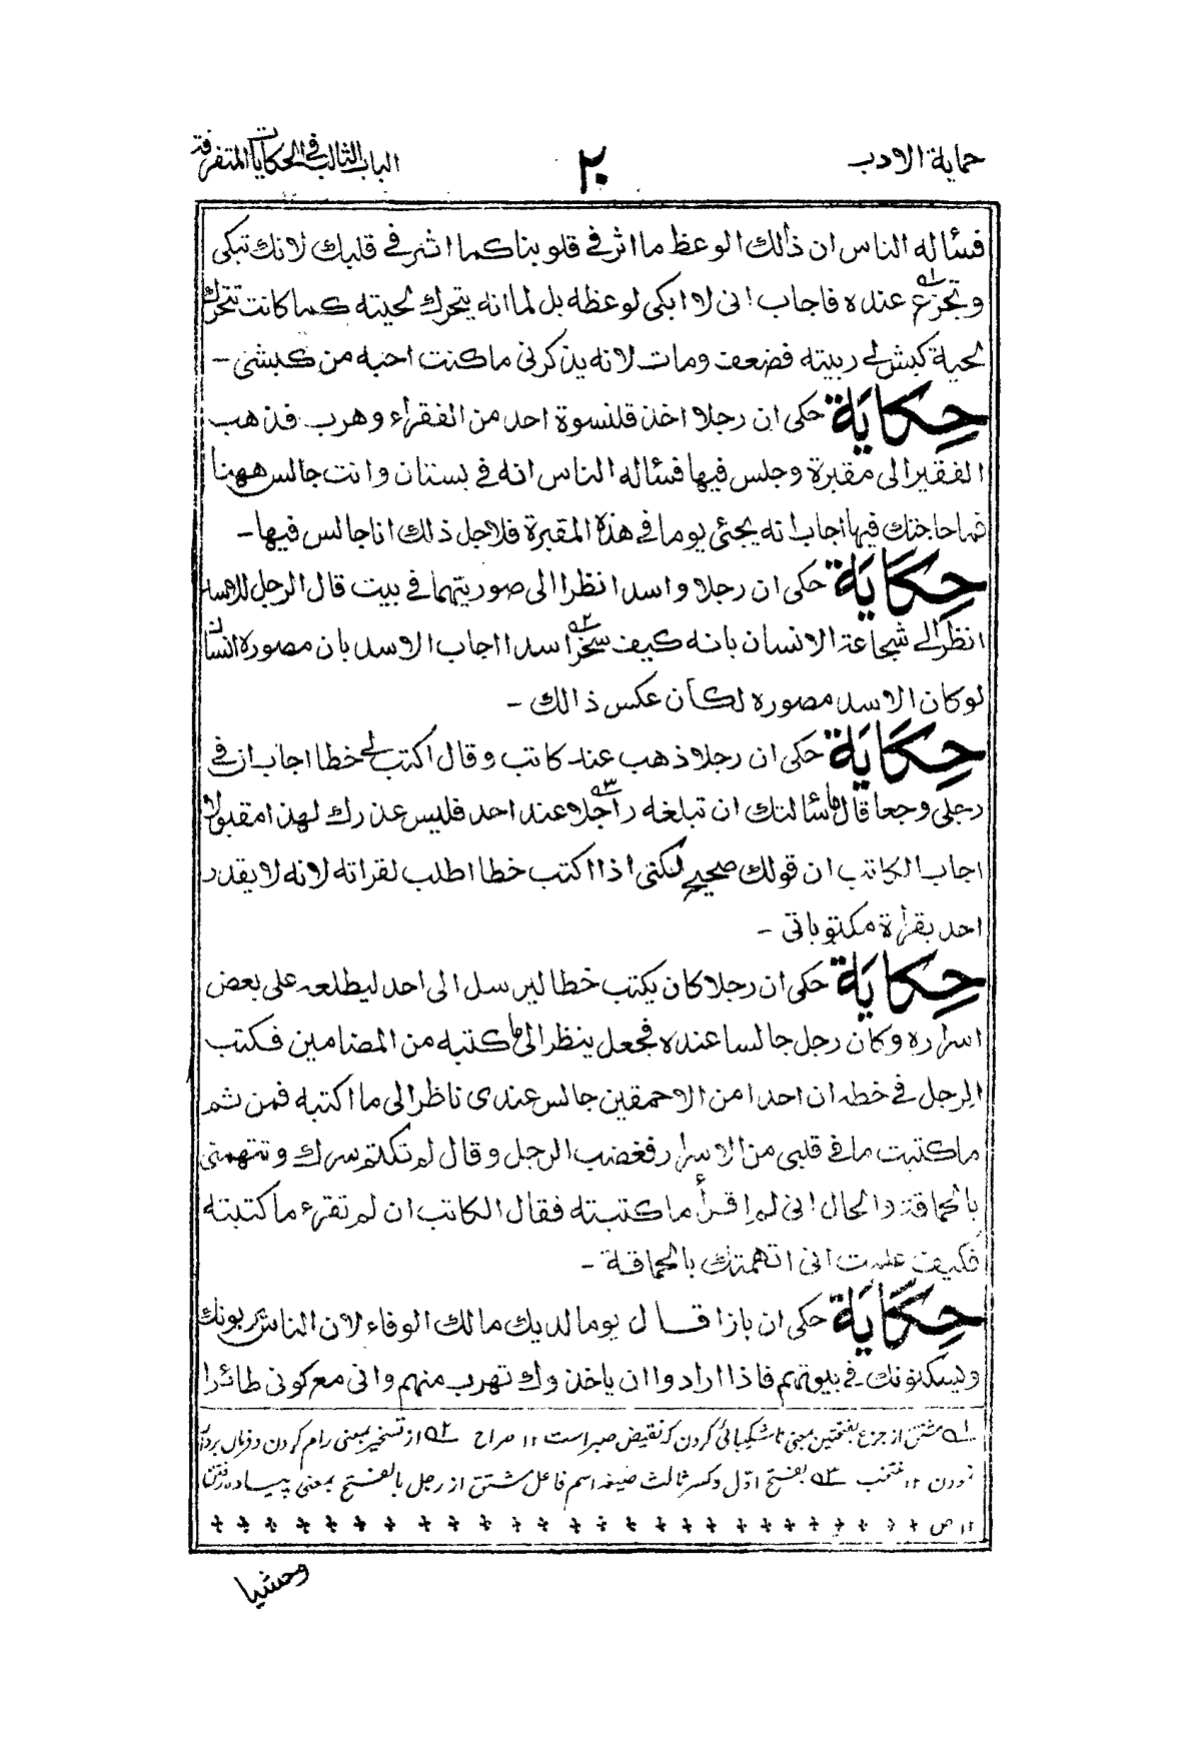 حماية الادب
٢٠
الباب الثالث في الحكايات المتفرقة
فسئاله الناس ان ذالك الوعظ ما اثر في قلوبنا كما اثر في قلبك لانك تبكى
وتجزع عنده فاجاب انى لا ابكى لوعظه بل لما انه يتحرك لحيته كما كانت تتحرك
لحية كبش لے ربيته فضعف ومات لانه يذكرنى ما كنت احبه من كبشى -
حِكَايَة حكى ان رجلا اخذ قلنسوة احد من الفقراء وهرب فذهب
الفقير الى مقبرة وجلس فيها فسئاله الناس انه فے بستان وانت جالس ههنا
فما حاجتك فيها اجاب انه يجئى يوما فى هذه المقبرة فلاجل ذلك انا جالس فيها -
حِكَايَة حكى ان رجلا واسدا نظرا الى صوريتهما فے بيت قال الرجل للاسد
انظر الے شجاعة الانسان بانه كيف سخر اسدا اجاب الاسد بان مصوره انسان
لو كان الاسد مصوره لكان عكس ذالك -
حِكَايَة حكى ان رجلا ذهب عند كاتب وقال اكتب لے خطا اجاب ان فے
رجلى وجعا قال ما سئالتك ان تبلغه راجلا عند احد فليس عذرك لهذا مقبولا
اجاب الكاتب ان قولك صحيح لكنى اذا اكتب خطا اطلب لقراته لانه لا يقدر
احد بقرأة مكتوباتى -
حِكَايَة حكى ان رجلا كان يكتب خطا ليرسل الى احد ليطلعه على بعض
اسراره وكان رجل جالسا عنده فجعل ينظر الى ما كتبه من المضامين فكتب
الرجل فے خطه ان احدا من الاحمقين جالس عندى ناظر الى ما اكتبه فمن ثم
ما كتبت ما فے قلبى من الاسرار فغضب الرجل وقال لم تكتم سرك وتتهمنى
بالحماقة والحال انى لم اقرأ ما كتبته فقال الكاتب ان لم تقرء ما كتبته
فكيف علمت انى اتهمتك بالحماقة -
حِكَايَة حكى ان بازا قال يوما لديك مالك الوفاء لان الناس يربونك
ويسكنونك فے بيوتهم فاذا ارادوا ان ياخذوك تهرب منهم وانى مع كونى طائرا
١ه مشتق از جزع بفتحتين بمعنى ناشكيبائى كردن كه نقيض صبر است ١٢ صراح ٢ه از تسخير بمعنى رام كردن و فرمان بردار
نمودن ١٢ منتخب ٣ه بفتح اول وكسر ثالث صيغه اسم فاعل مشتق از رجل بالفتح بمعنى پياده رفتن
١٢ ص
وحشيا